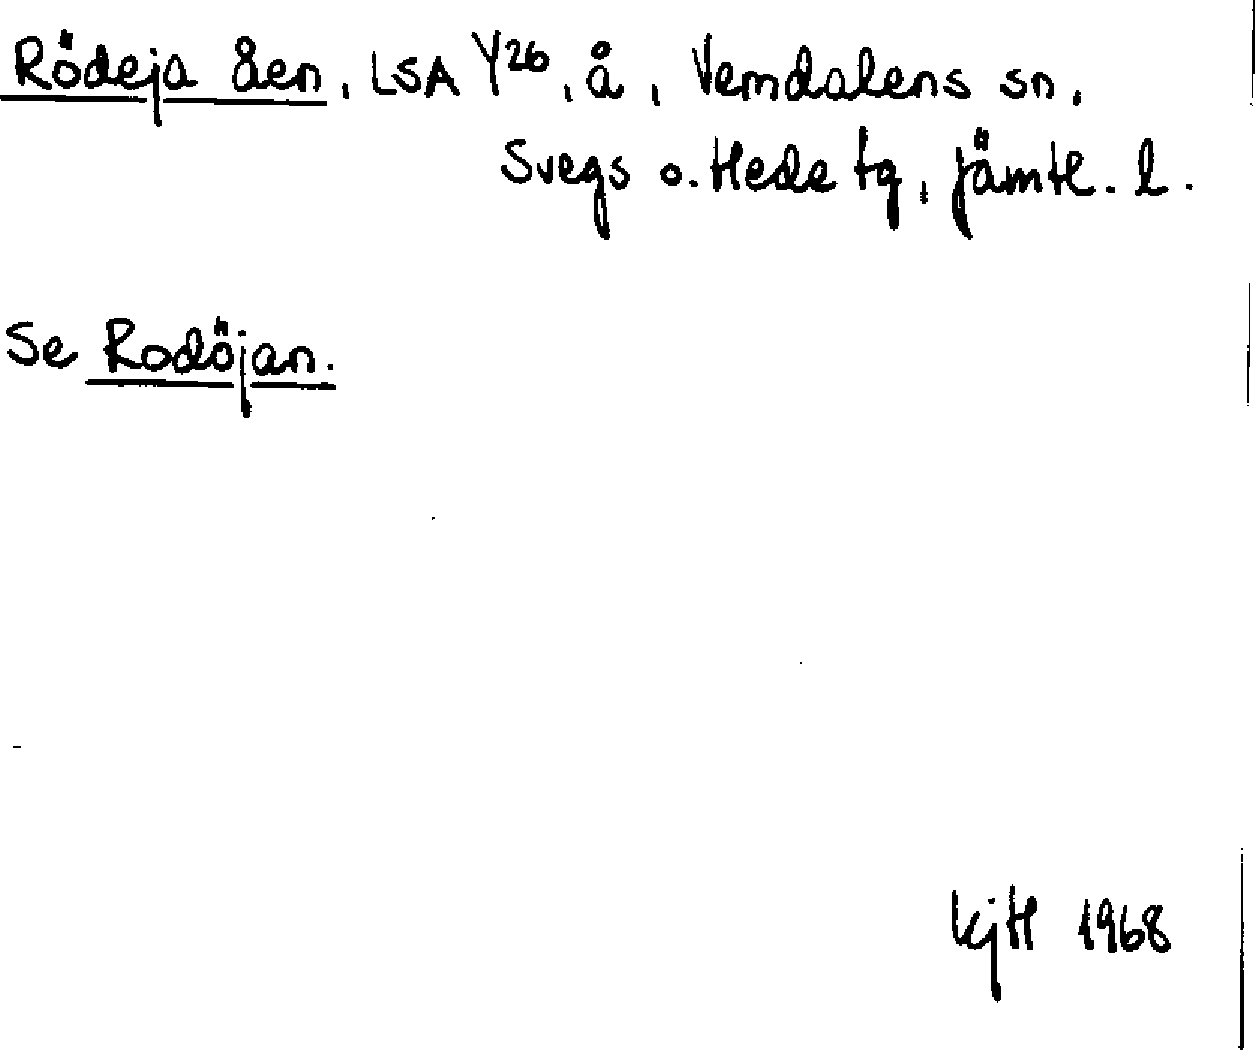 Rödeja åen, LSA Y26, å, Vemdalens sn,
Svegs o. Hede tg, Jämtl. l.
Se Rodöjan.
KjH 1968